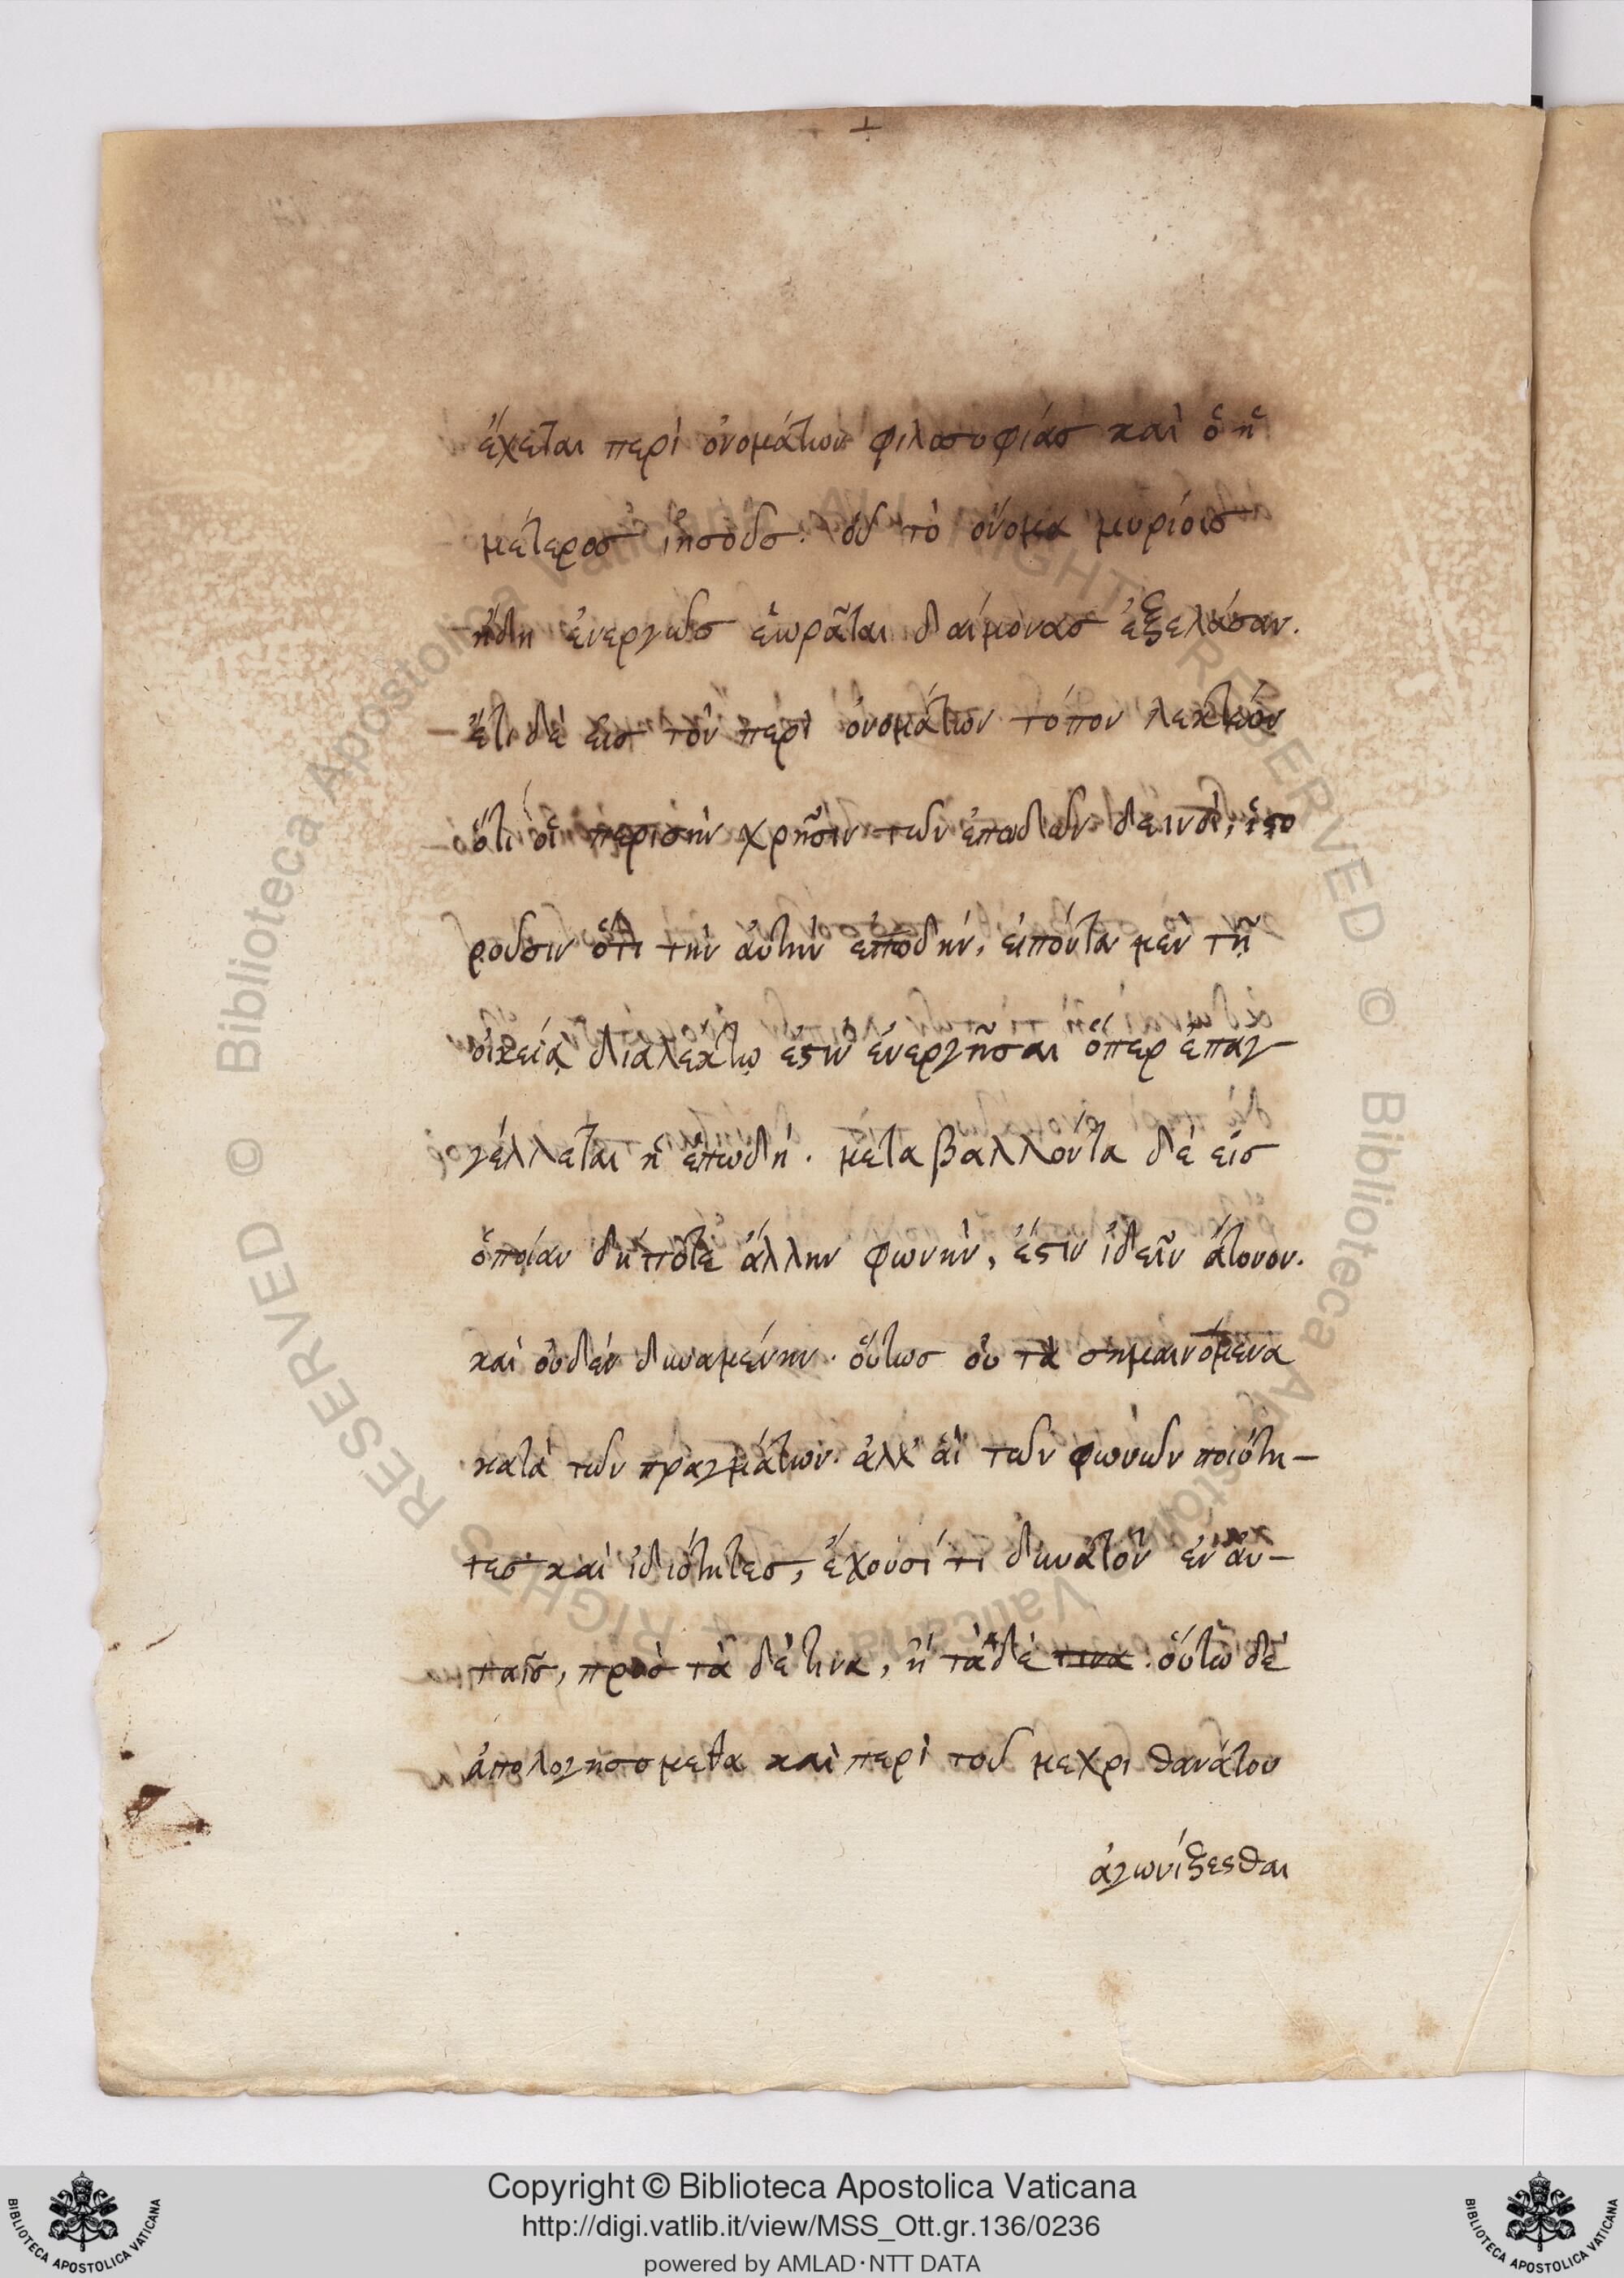 ἔχεται περὶ ὀνομάτων φιλοσοφίας καὶ ὁ ἡ
μέτερος ἰησοῦς. οὗ τὸ ὄνομα μυρίους
ἤδη ἐνεργῶς ἑωρᾶται δαίμονας ἐξελάσαν.
ἔτι δὲ εἰς τὸν περὶ ὀνομάτων τόπον λεκτέον
ὅτι οἱ περὶ τὴν χρῆσιν τῶν ἐπωδῶν δεινοὶ, ἱστο
ροῦσιν ὅτι τὴν αὐτὴν ἐπωδὴν, εἰπόντα μὲν τῇ
οἰκείᾳ διαλέκτῳ ἔστιν ἐνεργῆσαι ὅπερ ἐπαγ-
γέλλεται ἡ ἐπωδή. μεταβαλλόντα δὲ εἰς
ὁποίαν δήποτε ἄλλην φωνὴν, ἔστιν ἰδεῖν ἄτονον.
καὶ οὐδὲν δυναμένην. οὕτως οὐ τὰ σημαινόμενα
κατὰ τῶν πραγμάτων. ἀλλ' αἱ τῶν φωνῶν ποιότη-
τες καὶ ἰδιότητες, ἔχουσί τι δυνατὸν ἐν αὐ-
ταῖς, πρὸς τὰ δέ τινα, ἢ τὰ δέ τινα. οὕτω δὲ
ἀπολογησομεθα καὶ περὶ τοῦ μεχρι θανάτου
ἀγωνίζεσθαι
© Biblioteca Apostolica Vaticana ALL RIGHTS RESERVED
© Biblioteca Apostolica Vaticana ALL RIGHTS RESERVED
Copyright © Biblioteca Apostolica Vaticana
http://digi.vatlib.it/view/MSS_Ott.gr.136/0236
powered by AMLAD·NTT DATA
BIBLIOTECA APOSTOLICA VATICANA
BIBLIOTECA APOSTOLICA VATICANA